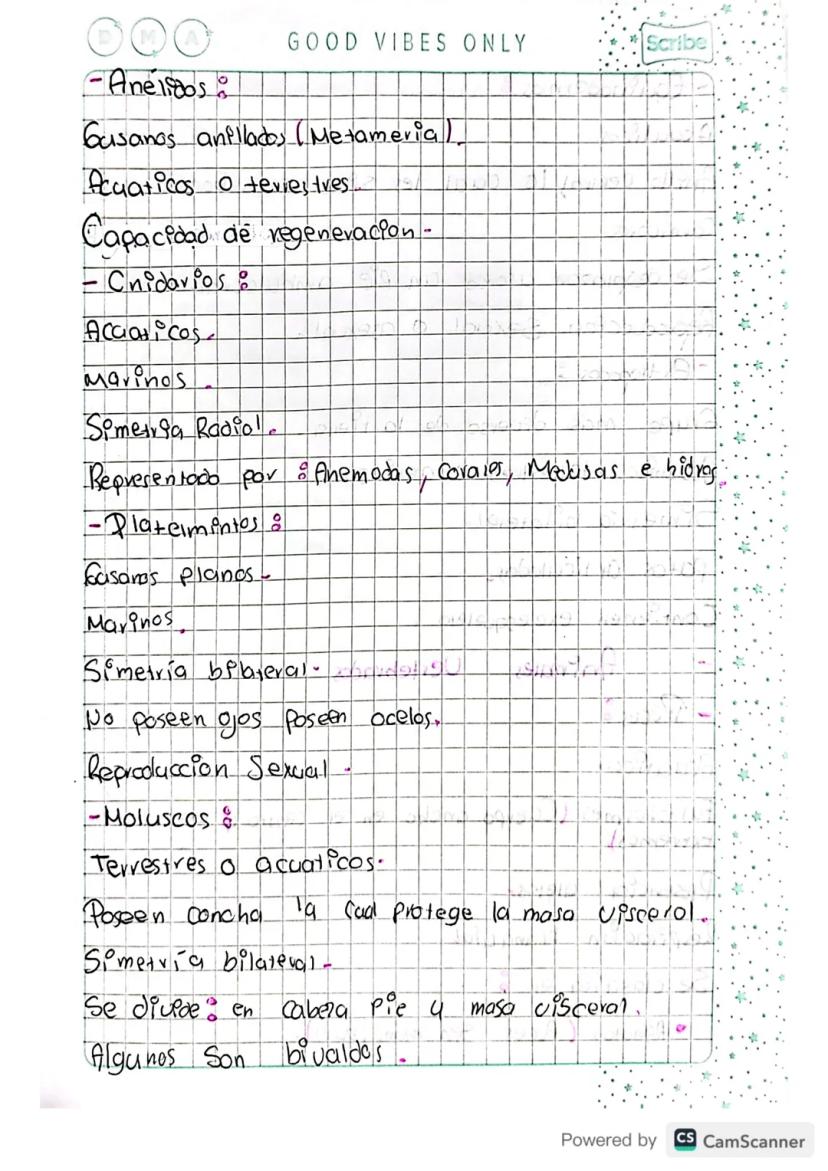 D M A
GOOD VIBES ONLY
Scribe
- Anélidos:
Gusanos anillados (Metameria).
Acuaticos o terrestres.
Capacidad de regeneracion.
- Cnidarios:
Acuaticos.
Marinos.
Simetria Radial.
Representado por: Anemodas, corales, Medusas e hidras.
- Platelmintos:
Gusanos planos.
Marinos.
Simetría bilateral.
No poseen ojos poseen ocelos.
Reproduccion Sexual.
- Moluscos:
Terrestres o acuaticos.
Poseen concha la cual protege la masa visceral.
Simetría bilateral.
Se divide: en cabeza pie y masa visceral.
Algunos son bivaldos.
Powered by CS CamScanner